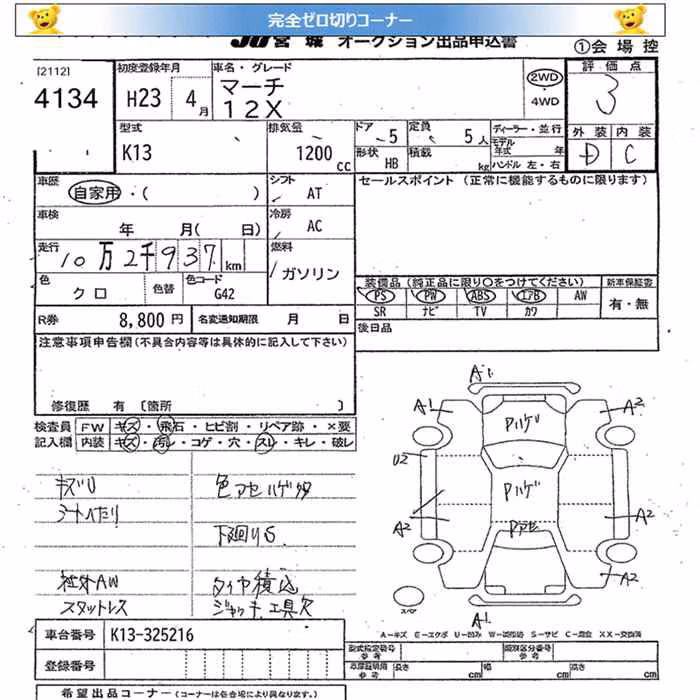 完全ゼロ切りコーナー
JU宮城 オークション出品申込書
①会場控
[2112]
4134
初度登録年月
H23 4月
車名・グレード
マーチ
12X
2WD
4WD
評価点
3
外装 内装
D C
型式
K13
排気量
1200 cc
ドア 5
定員 5人
形状 HB
積載 kg
ディーラー・並行
モデル年式 年
ハンドル 左・右
車歴
自家用・( )
シフト
AT
セールスポイント (正常に機能するものに限ります)
車検
年 月( 日)
冷房
AC
走行
10万2千937km
燃料
ガソリン
色
クロ
色替
色コード
G42
装備品(純正品に限り○をつけてください)
新車保証書
PS PW ABS エアB AW
有・無
SR ナビ TV カワ
R券
8,800円
名変通知期限 月 日
後日品
注意事項申告欄(不具合内容等は具体的に記入して下さい)
修復歴 有 [箇所 ]
検査員記入欄
FW キズ・飛石・ヒビ割・リペア跡・×要
内装 キズ・汚レ・コゲ・穴・スレ・キレ・破レ
キズU
シートへたり
色アセハゲ多
下回りS
社外AW
スタットレス
タイヤ積込
ジャッキ、工具欠
A1
A1
A2
PハゲU
U2
Pハゲ
A2
A2
Pアセ
A2
スペア
A1
A-キズ E-エクボ U-凹み W-波板跡 S-サビ C-腐食 XX-交換済
車台番号
K13-325216
登録番号
型式指定番号 参考
類別区分番号 参考
車庫証明用 参考
長さ cm
幅 cm
高さ cm
希望出品コーナー(コーナーは各会場により異なります。)